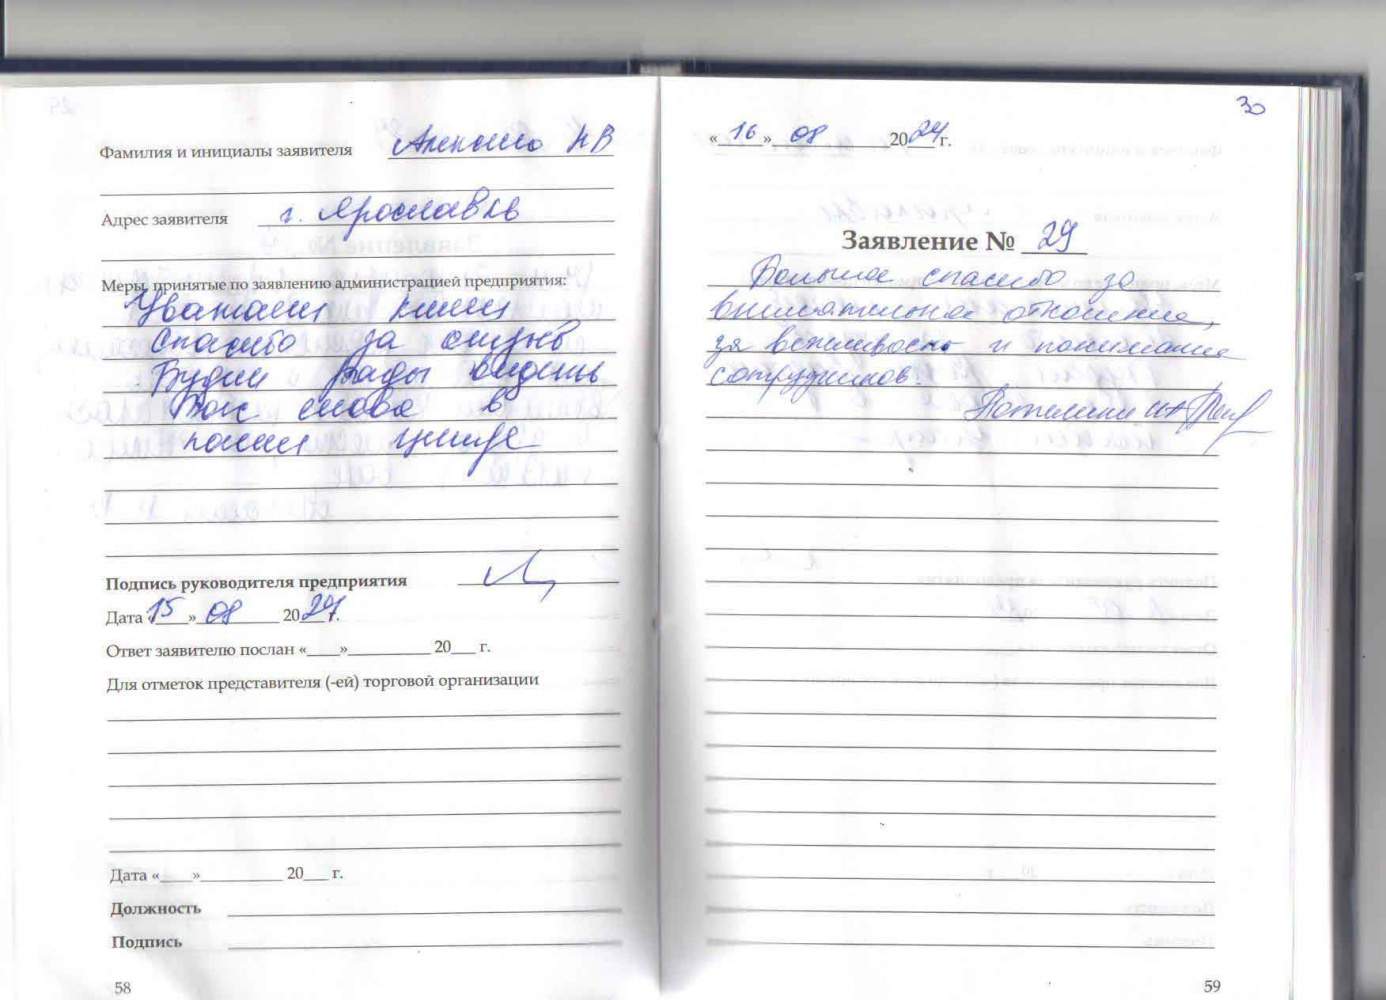 Фамилия и инициалы заявителя НВ
Адрес заявителя г. Ярославль
Меры, принятые по заявлению администрацией предприятия:
Спасибо за отзыв
Будем рады видеть
Вас снова в
нашем центре
Подпись руководителя предприятия
Дата «15» 08 2024.
Ответ заявителю послан «___»__________ 20___ г.
Для отметок представителя (-ей) торговой организации
Дата «____»__________ 20___ г.
Должность
Подпись
58
30
«16» 08 2024 г.
Заявление № 29
Большое спасибо за
внимательное отношение,
за вежливость и понимание
сотрудников.
59